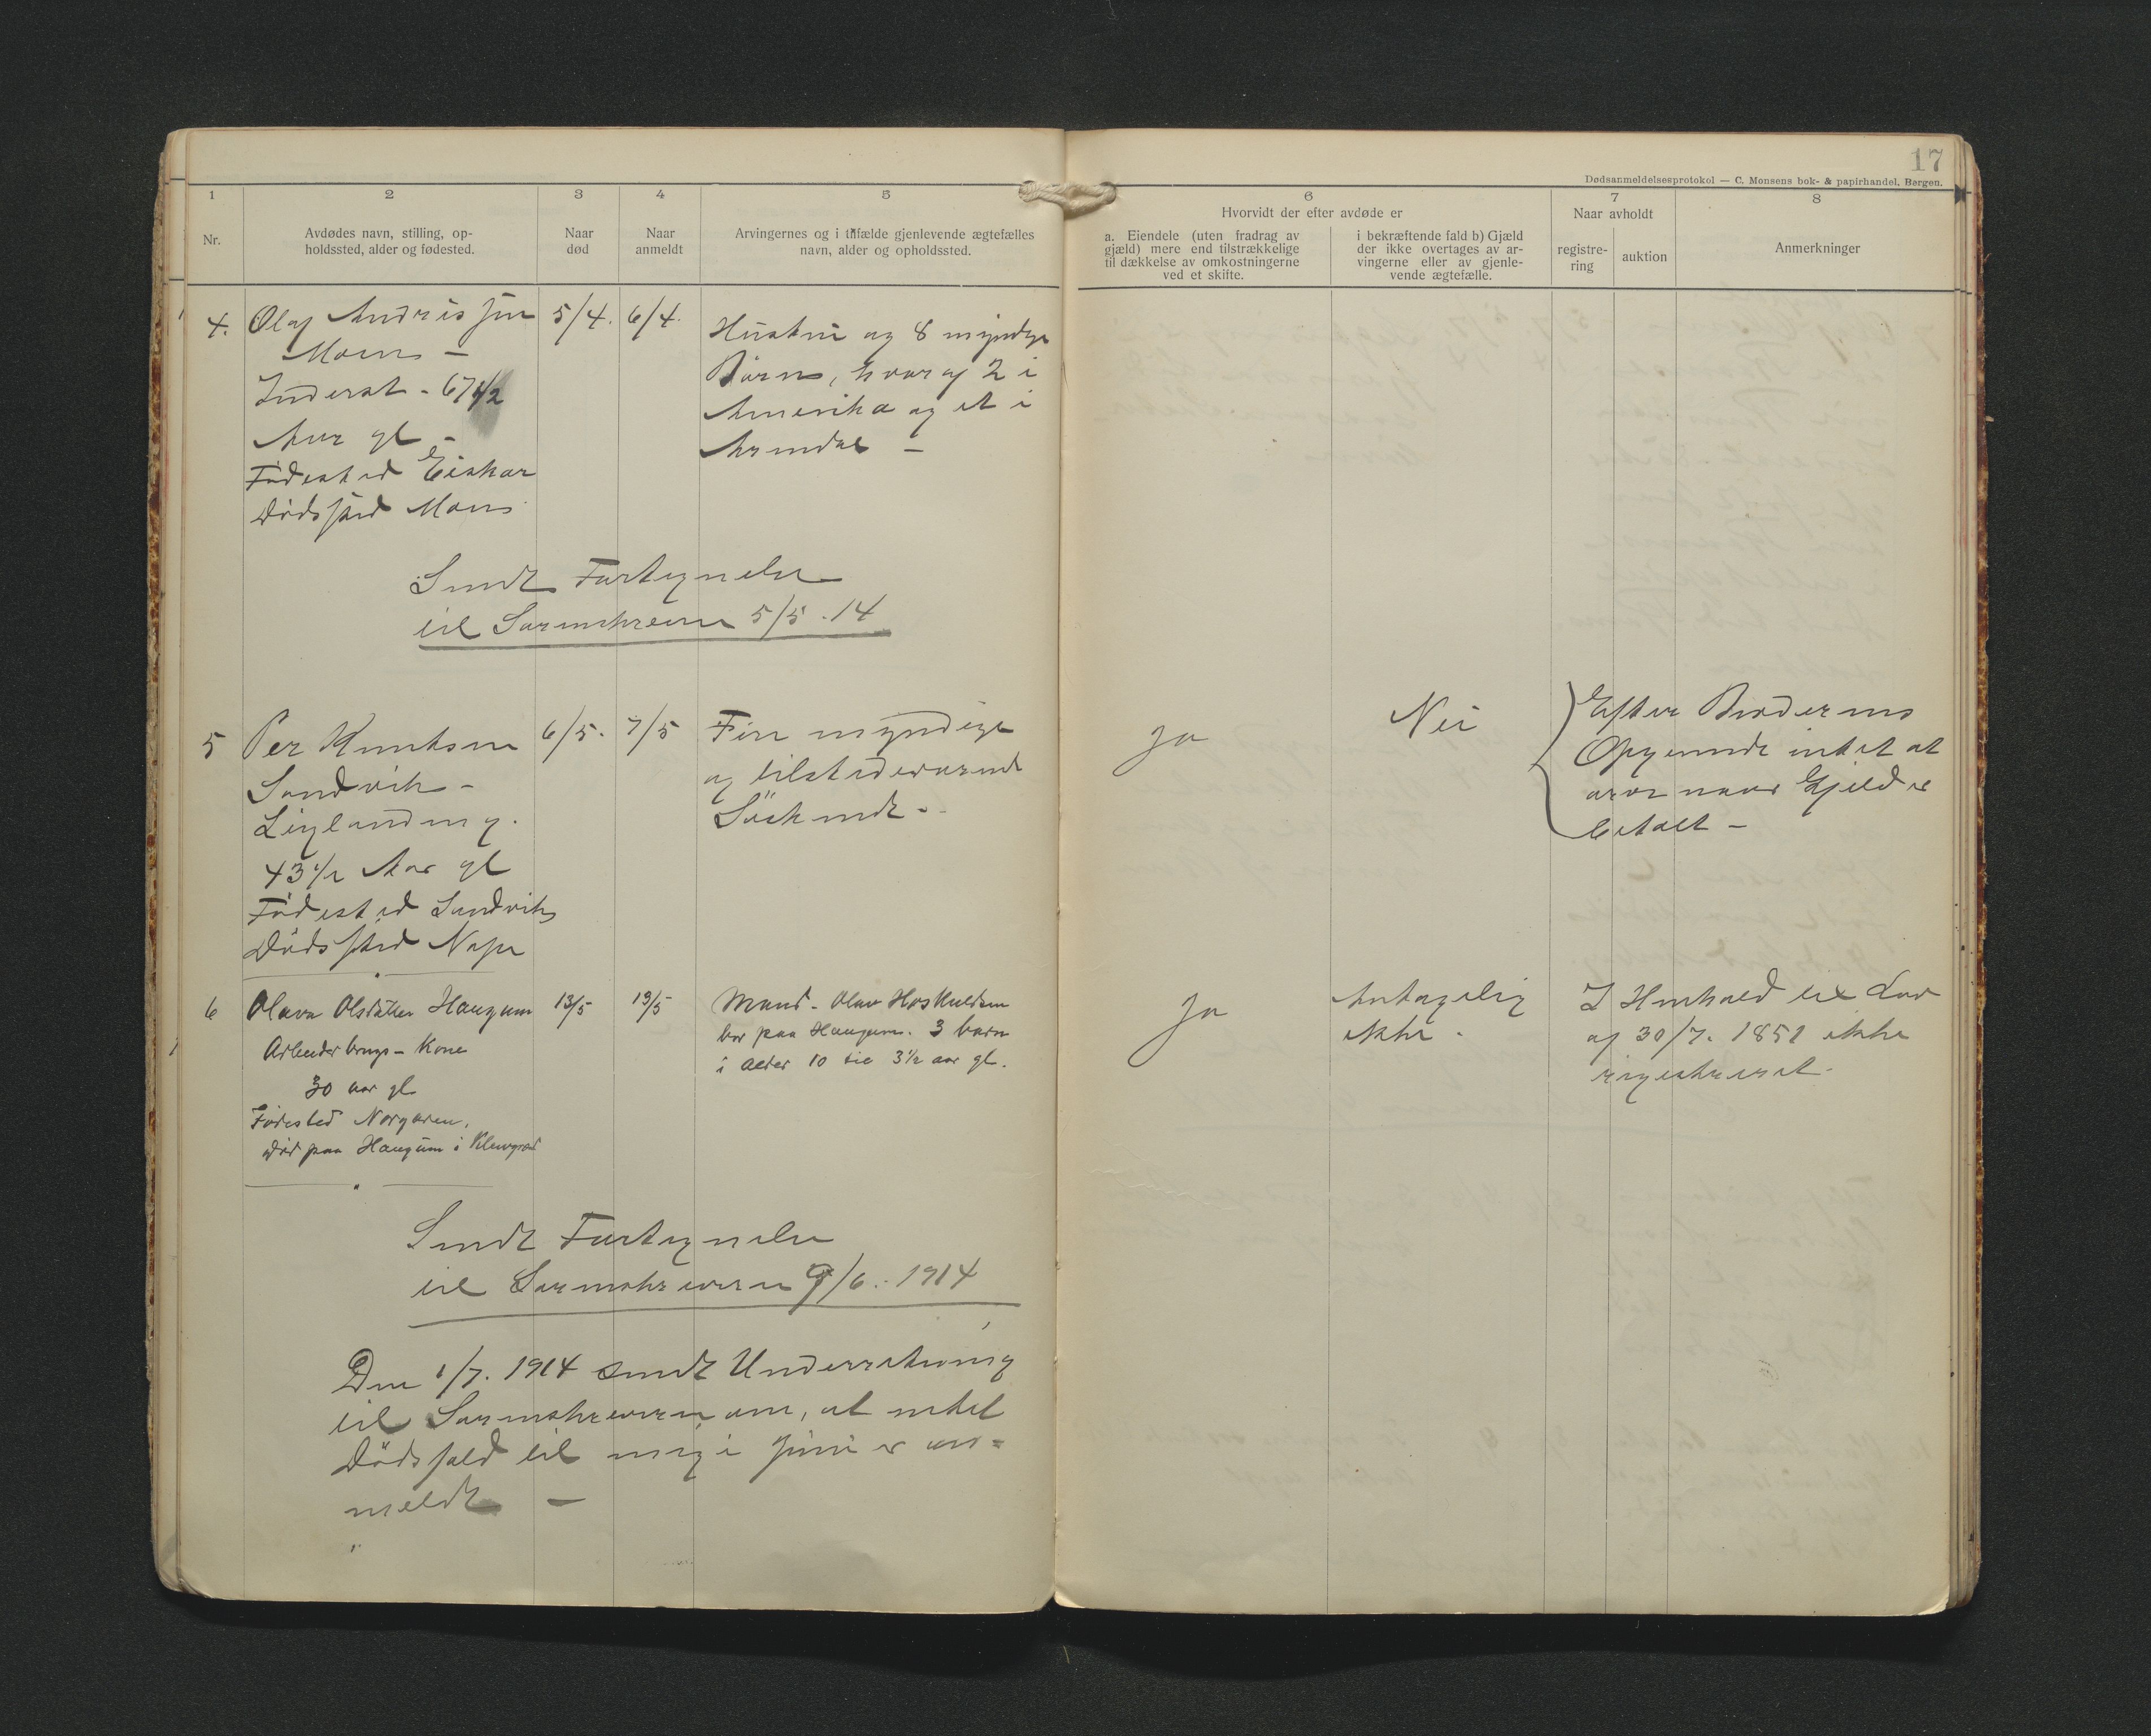 17
Dødsanmeldelsesprotokol — C. Monsens bok- & papirhandel, Bergen.
1
2
3
4
5
6
7
8
Nr.
Avdødes navn, stilling, op-
holdssted, alder og fødested.
Naar
død
Naar
anmeldt
Arvingernes og i tilfælde gjenlevende ægtefælles
navn, alder og opholdssted.
Hvorvidt der efter avdøde er
a. Eiendele (uten fradrag av
gjæld) mere end tilstrækkelige
til dækkelse av omkostningerne
ved et skifte.
i bekræftende fald b) Gjæld
der ikke overtages av ar-
vingerne eller av gjenle-
vende ægtefælle.
Naar avholdt
registre-
ring
auktion
Anmerkninger
4. Olaf Andris søn 5/4. 6/4.
Moen –
Inderst - 67 1/2
Aar gl –
Fødested Eiskar
Dødssted Moen
Hustru og 8 myndige
Børn, hvoraf 2 i
Amerika og et i
Arendal –
Sendt Fortegnelse
til Sorenskriveren 5/5. 14
5 Per Knutsen 6/5. 7/5
Sandvik –
43 1/2 Aar gl
Fødested Sandviks
Dødssted
Fire myndige
og tilstedeværende
Søskende -
Ja
Nei
Efter Broderens
Opgivende intet at
arve naar Gjeld er
betalt –
6 Olava Olsdatter Haugum 13/5 19/5
Arbeider - Kone
30 aar gl
Fødested Norgaren,
død paa Haugum i
Mand - Olav Hoskuldsen
bor paa Haugum. 3 barn
i alder 10 til 3 1/2 aar gl.
Ja
Antagelig
ikke.
I Henhold til Lov
af 30/7. 1851 ikke
registreret.
Sendt Fortegnelse
til Sorenskriveren 9/6. 1914
Den 1/7. 1914 sendt Underretning
til Sorenskriveren om, at intet
Dødsfald til mig i Juni er an-
meldt –